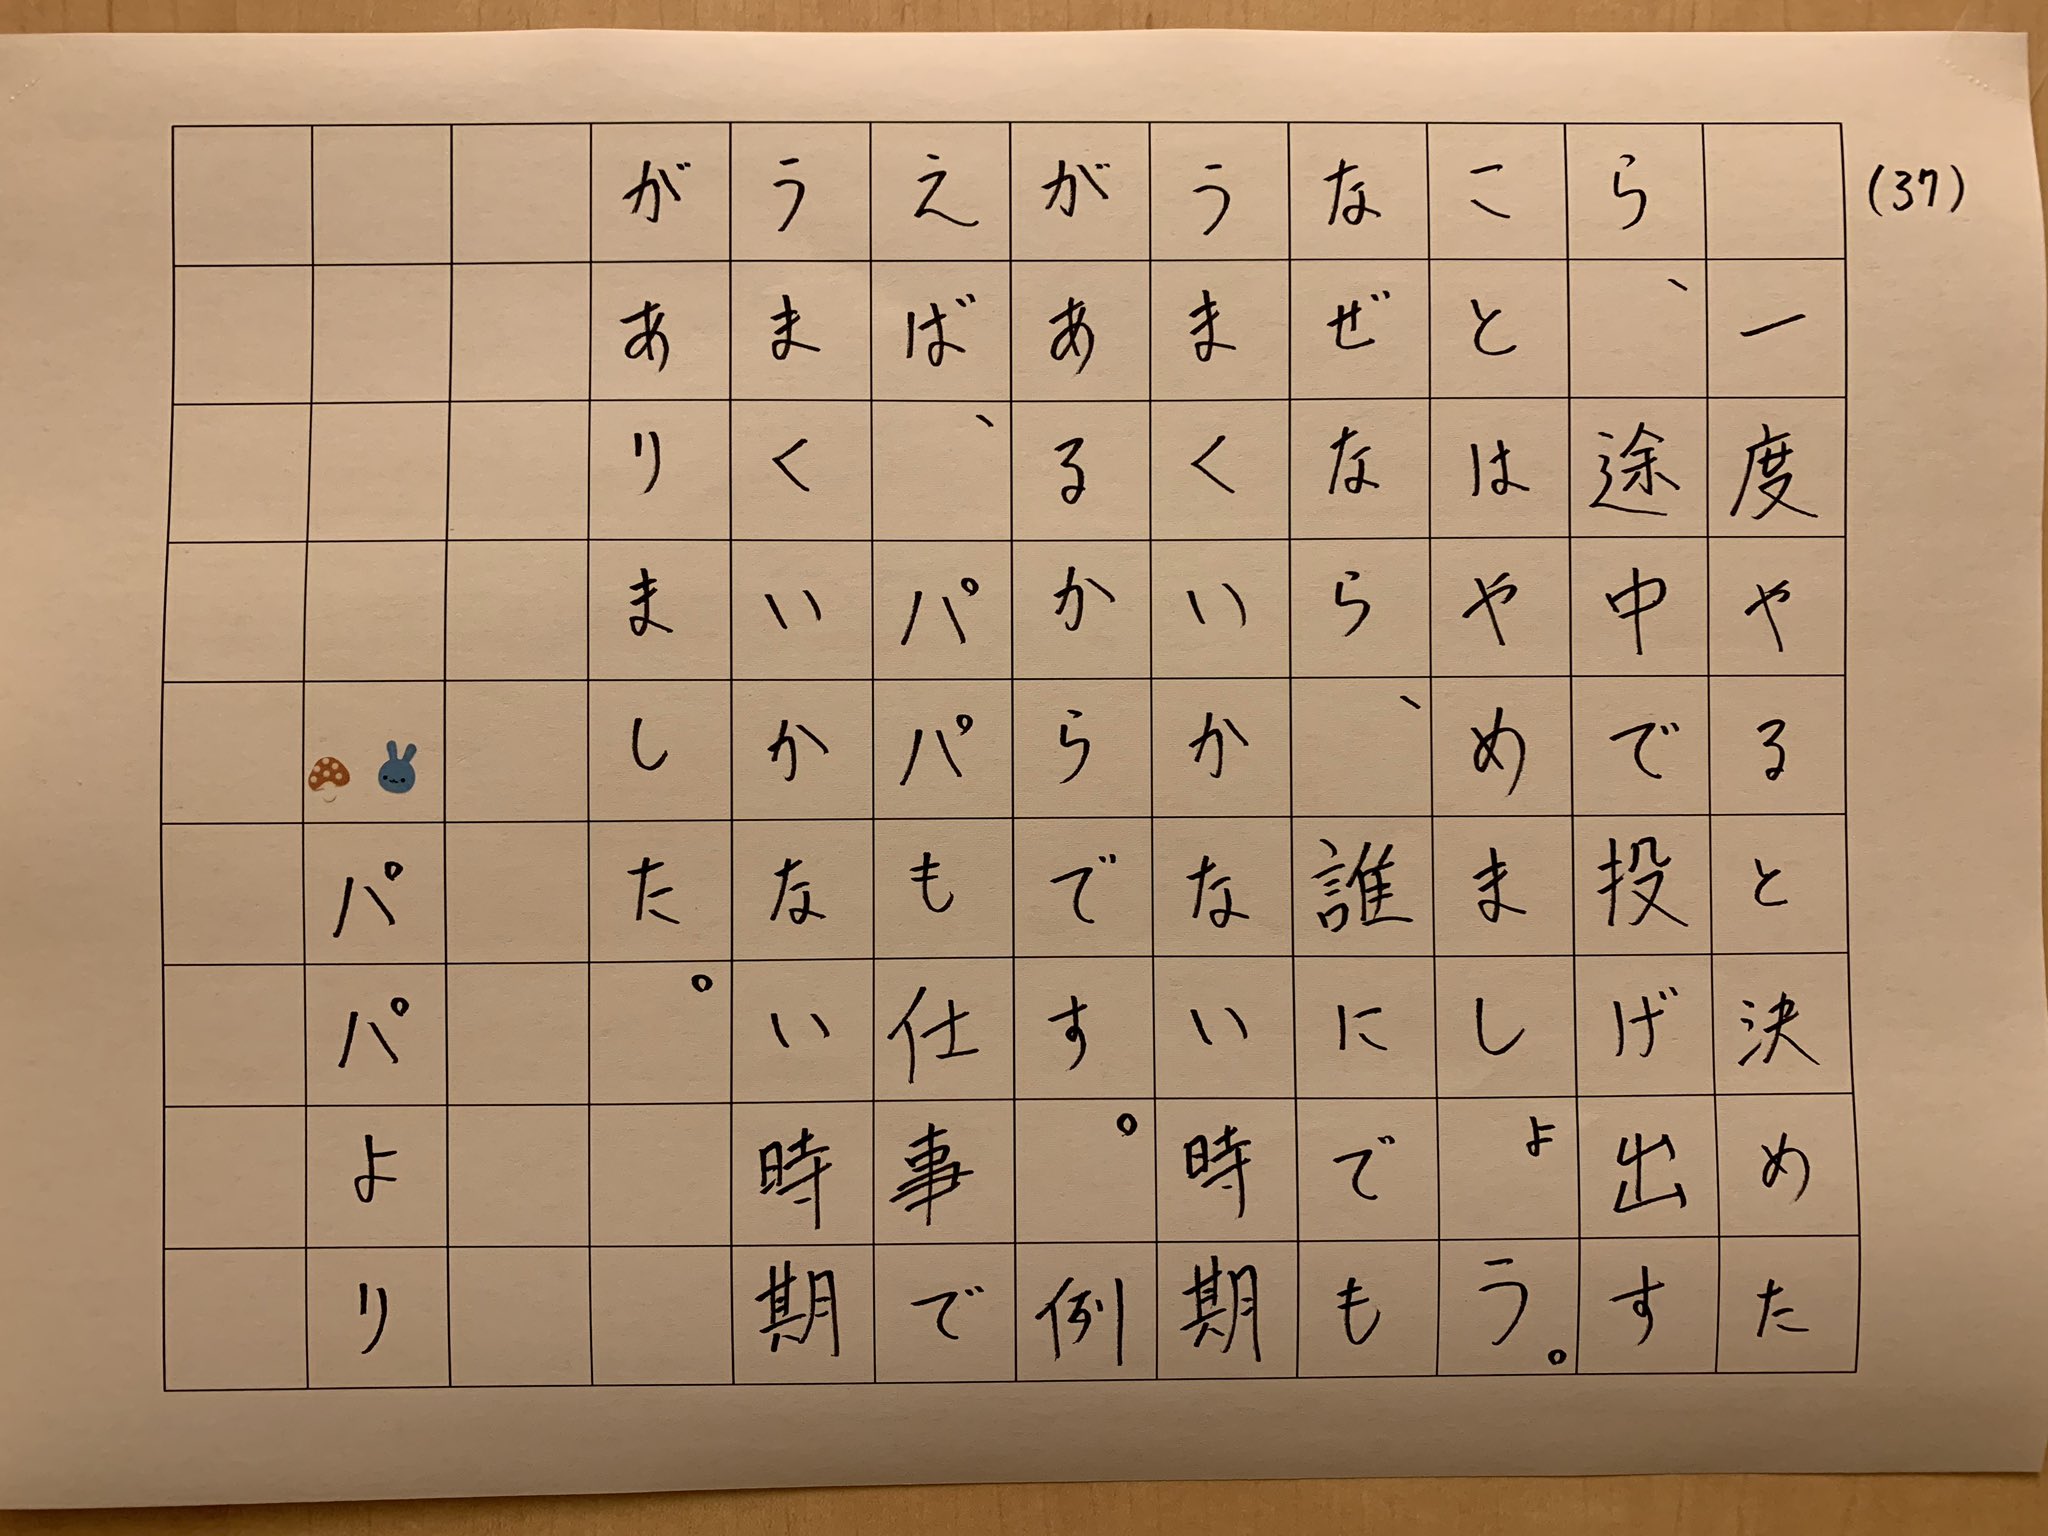 (37)
一度やると決めた
ら、途中で投げ出す
ことはやめましょう。
なぜなら、誰にでも
うまくいかない時期
があるからです。例
えば、パパも仕事で
うまくいかない時期
がありました。
パパより